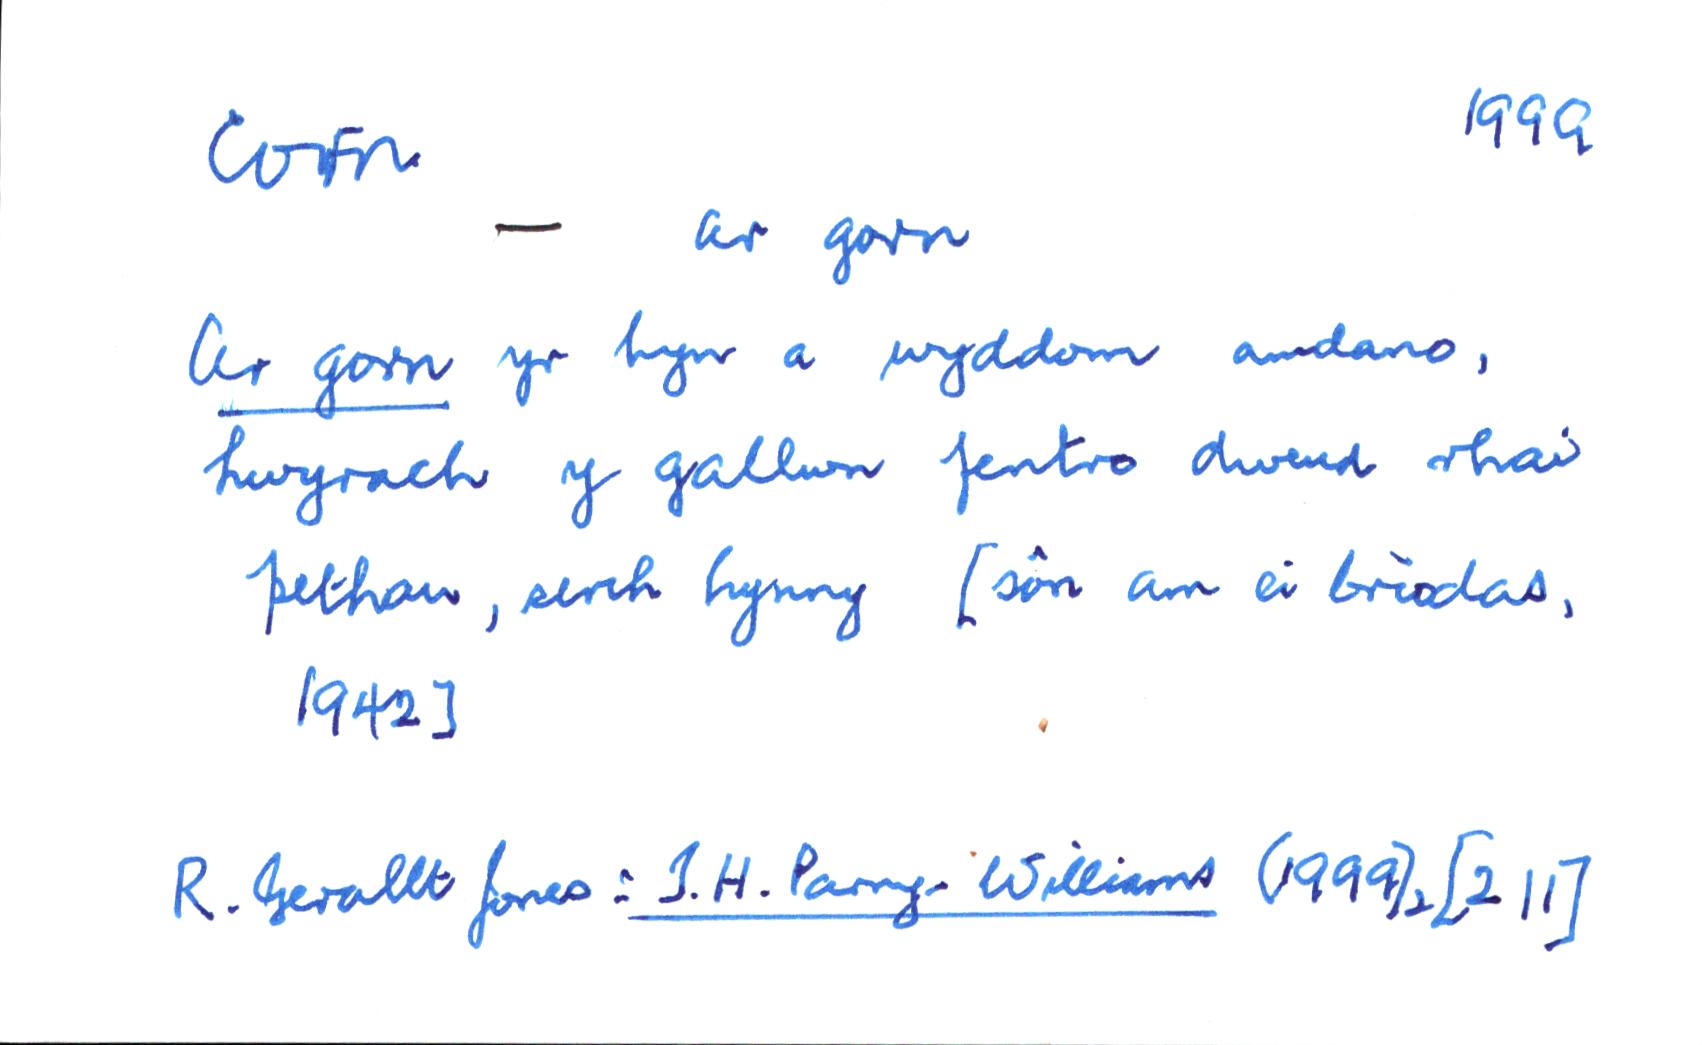 Corn. 1999
— ar gorn
Ar gorn yr hyn a wyddom amdano,
hwyrach y gallwn fentro dweud rhai
pethau, serch hynny [sôn am ei briodas,
1942]
R. Gerallt Jones: T.H. Parry-Williams (1999), [211]